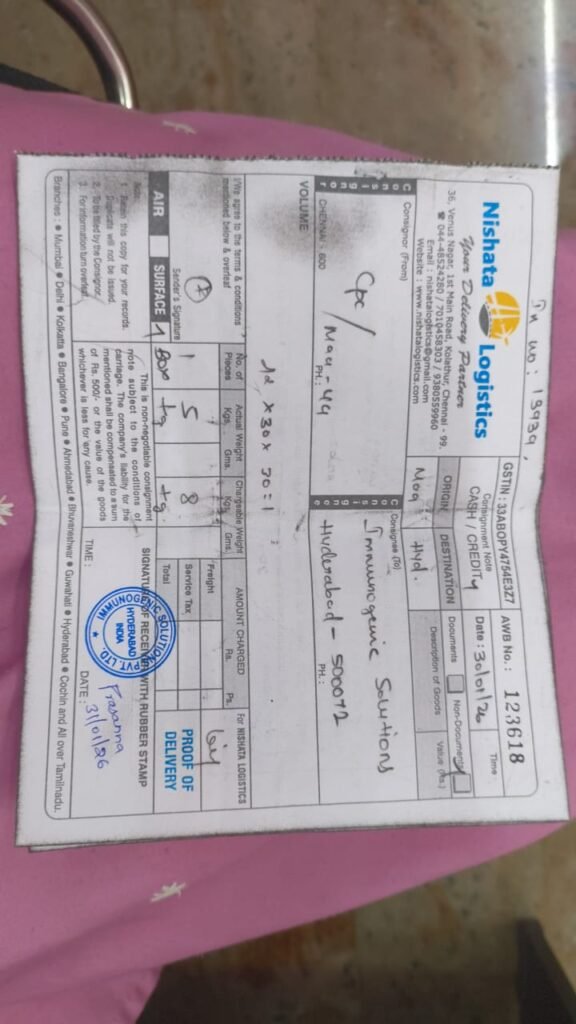 In no: 13939,
Nishata Logistics
Your Delivery Partner
36, Venus Nagar, 1st Main Road, Kolathur, Chennai - 99.
☎ 044-48524280 / 7010458303 / 9380559960
Email : nishatalogistics@gmail.com
Website : www.nishatalogistics.com
GSTIN : 33ABOPY4754E3Z7
AWB No. : 123618
Consignment Note
CASH / CREDIT
Date : 30/01/26
Time
ORIGIN
DESTINATION
Hyd.
Documents
Non-Documents
Description of Goods
Value (Rs.)
Consignor (From)
Consignor
CPC /
CHENNAI - 600
PH. :
Consignee (To)
Consignee
Immunogenic Solutions
Hyderabad - 500072
PH. :
VOLUME
12 x 30 x 30 = 1
I/We agree to the terms & conditions
mentioned below & overleaf
Sender's Signature
No. of Pieces
Actual Weight
Kgs. Gms.
Chargeable Weight
Kgs. Gms.
AMOUNT CHARGED
Rs. Ps.
For NISHATA LOGISTICS
1
Box
5
kg
8
kg
Freight
Service Tax
Total
PROOF OF DELIVERY
AIR
SURFACE
Note:
1. Retain this copy for your records.
Duplicate will not be issued.
2. To be filled by the Consignor.
3. For information turn overleaf.
This is non-negotiable consignment
note subject to the conditions of
carriage. The company's liability for the
mentioned shall be compensated to a sum
of Rs. 500/- or the value of the goods
whichever is less for any cause.
SIGNATURE OF RECEIVER WITH RUBBER STAMP
IMMUNOGENIC SOLUTIONS PVT. LTD.
HYDERABAD
INDIA
Prasanna
TIME :
DATE : 31/01/26
Branches : ● Mumbai ● Delhi ● Kolkatta ● Bangalore ● Pune ● Ahmedabad ● Bhuvaneshwar ● Guwahati ● Hyderabad ● Cochin and All over Tamilnadu.